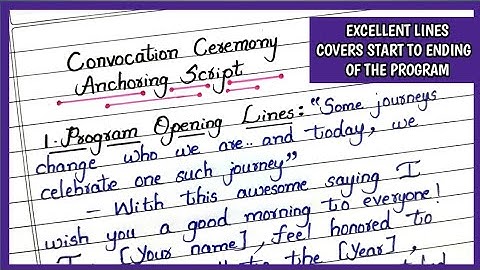 EXCELLENT LINES
COVERS START TO ENDING
OF THE PROGRAM
Convocation Ceremony
Anchoring Script
1. Program Opening Lines: "Some journeys
change who we are.. and today, we
celebrate one such journey"
- With this awesome saying I
wish you a good morning to everyone!
I [Your name], feel honored to
the [Year],